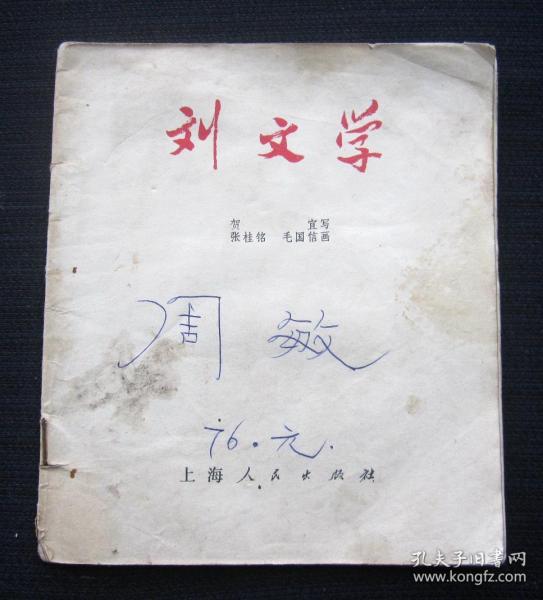 刘文学
贺 宜写
张桂铭 毛国信画
周敏
76.元.
上海人民出版社
孔夫子旧书网
www.kongfz.com